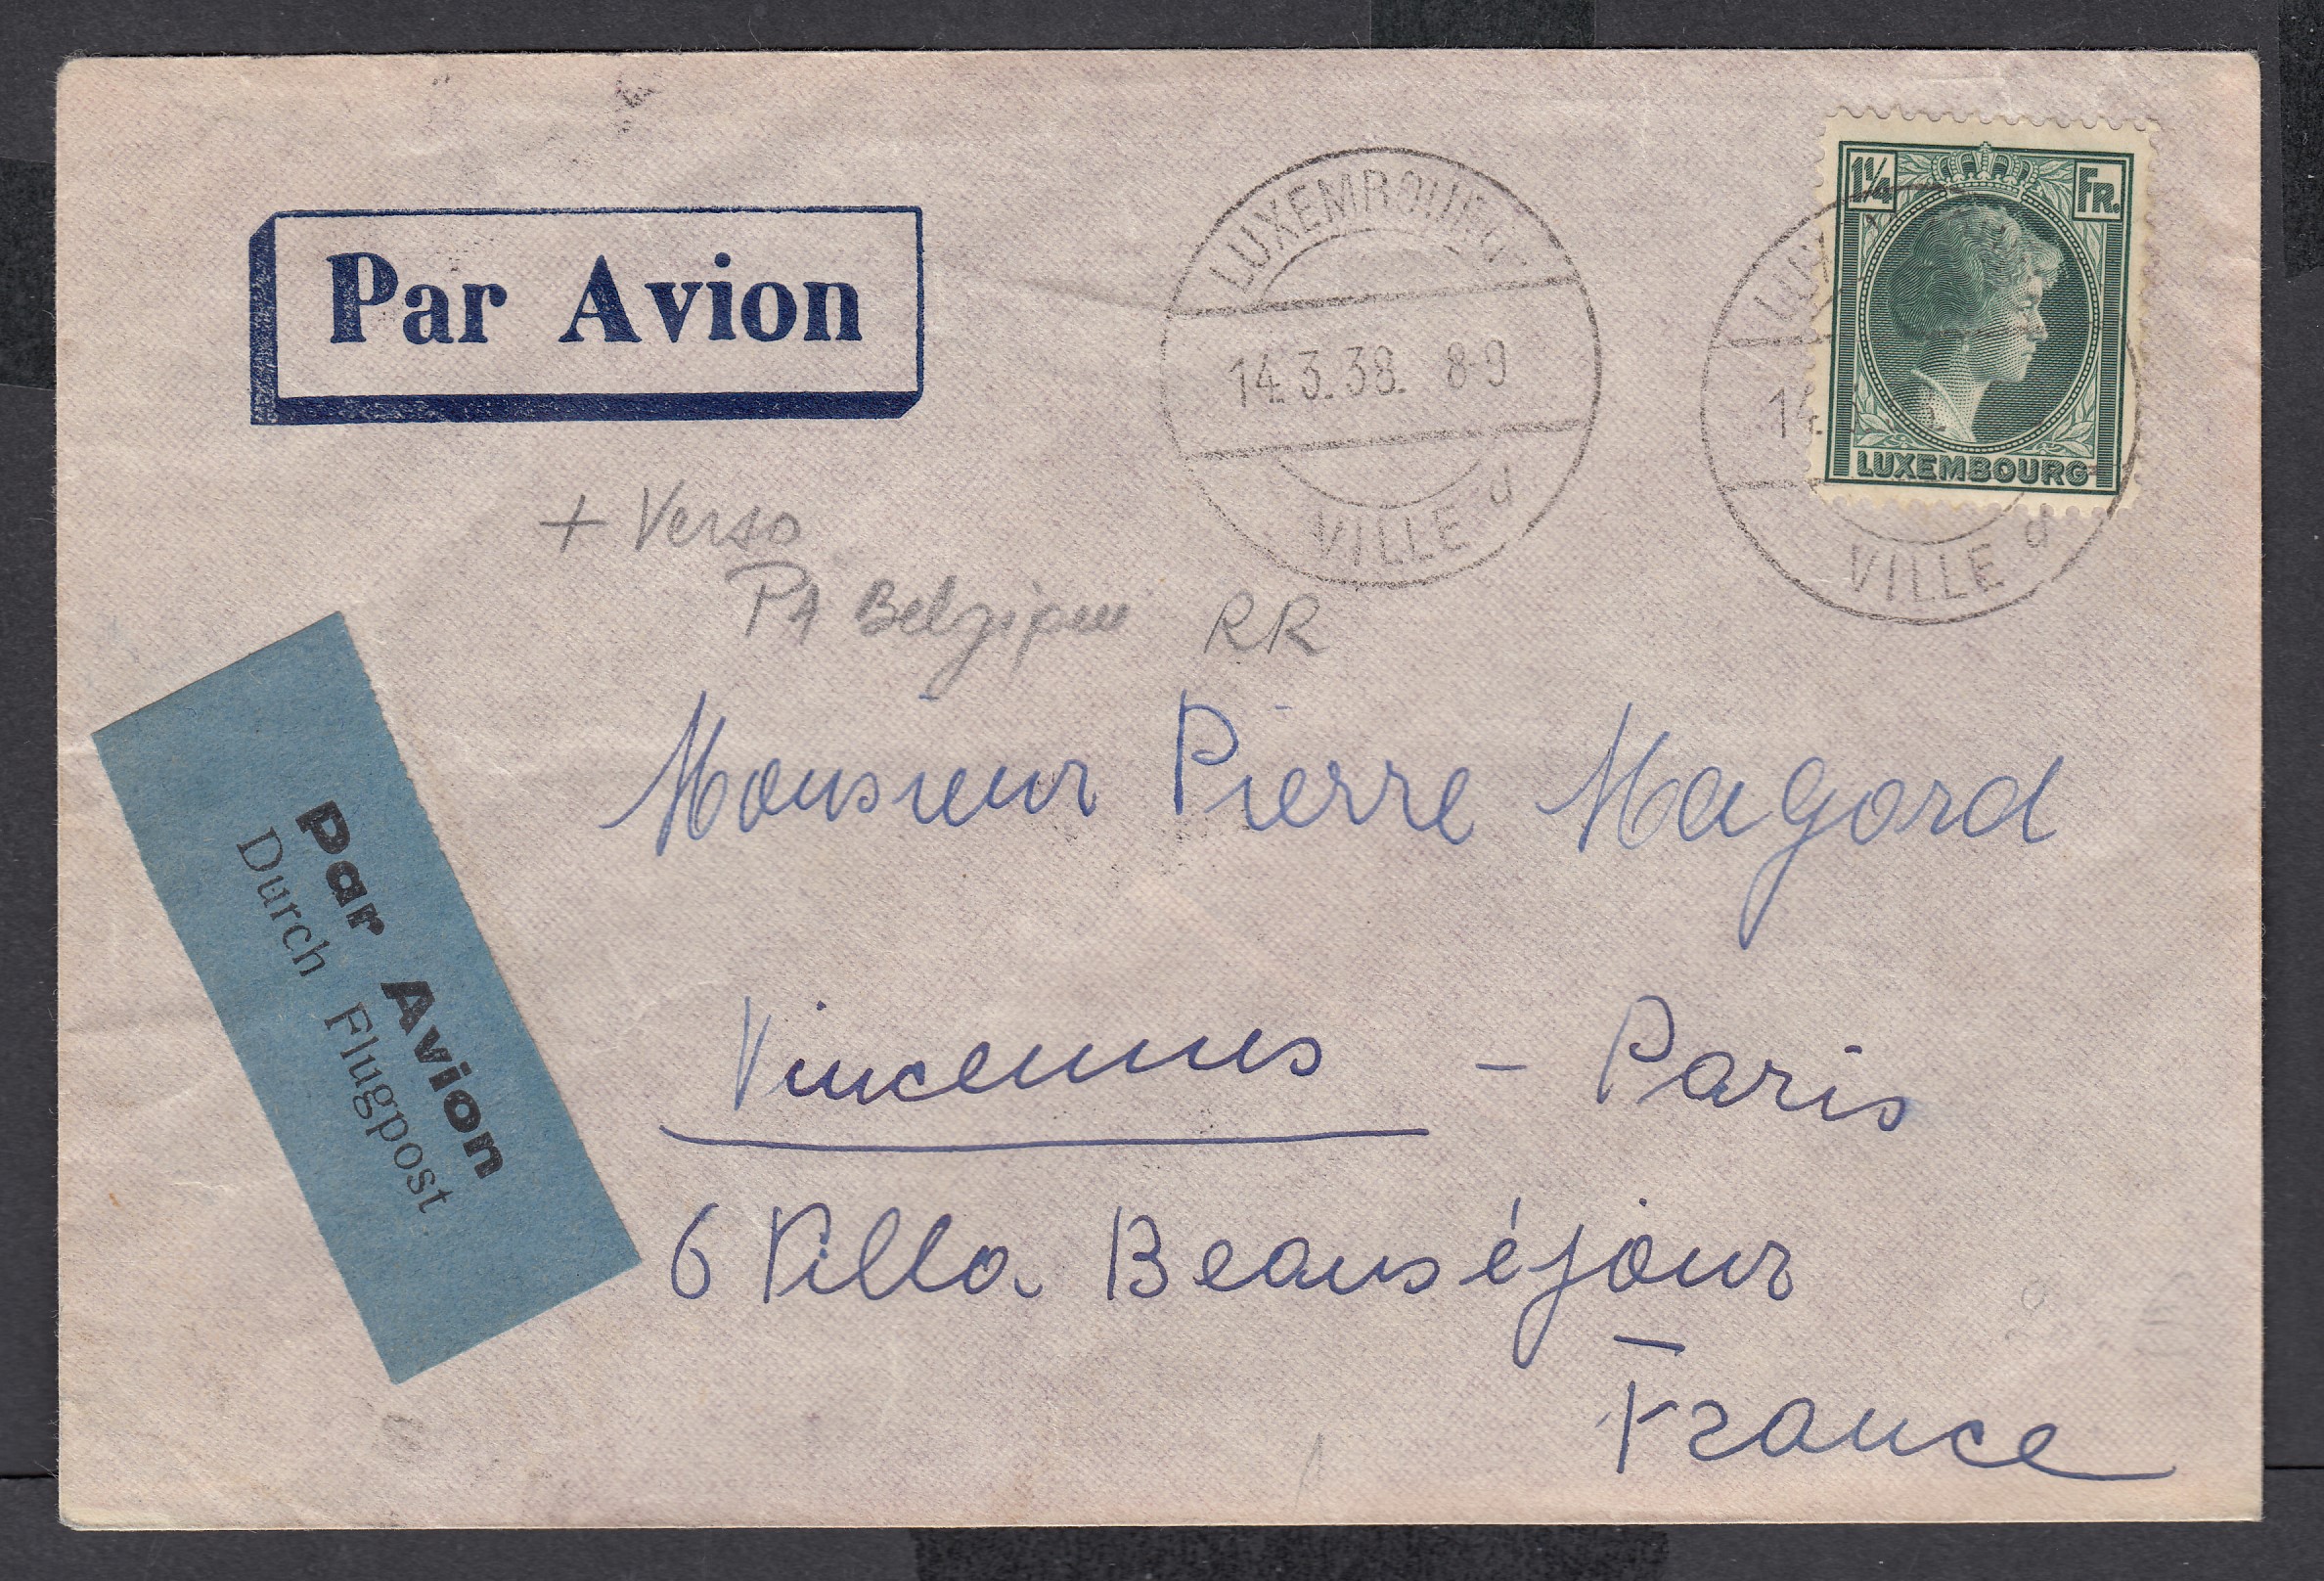 Par Avion
LUXEMBOURG
14.3.38. 8-9
VILLE d
LUX
14.
VILLE d
1¼ FR.
LUXEMBOURG
+ Verso
PA Belgique RR
Par Avion
Durch Flugpost
Monsieur Pierre Magord
Vincennes - Paris
6 Villa Beauséjour
France